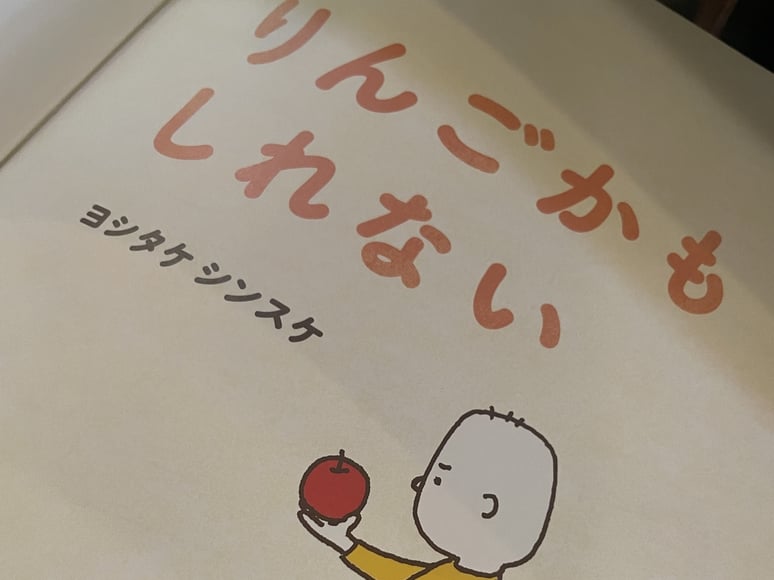 りんごかも
しれない
ヨシタケ シンスケ